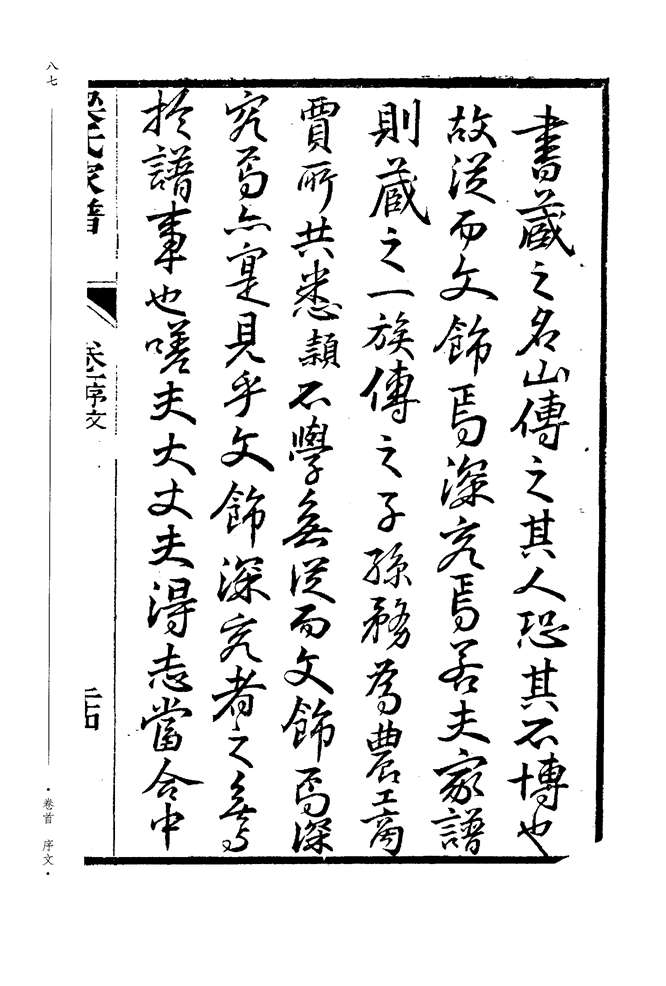 書藏之名山傳之其人恐其不博也
故從而文飾焉深究焉若夫家譜
則藏之一族傳之子孫務為農工商
賈所共悉顓不學無從而文飾焉深
究焉亦寔見乎文飾深究者之無與
於譜事也嗟夫大丈夫得志當合中
氏家譜
卷一序文
八七
·卷首 序文·